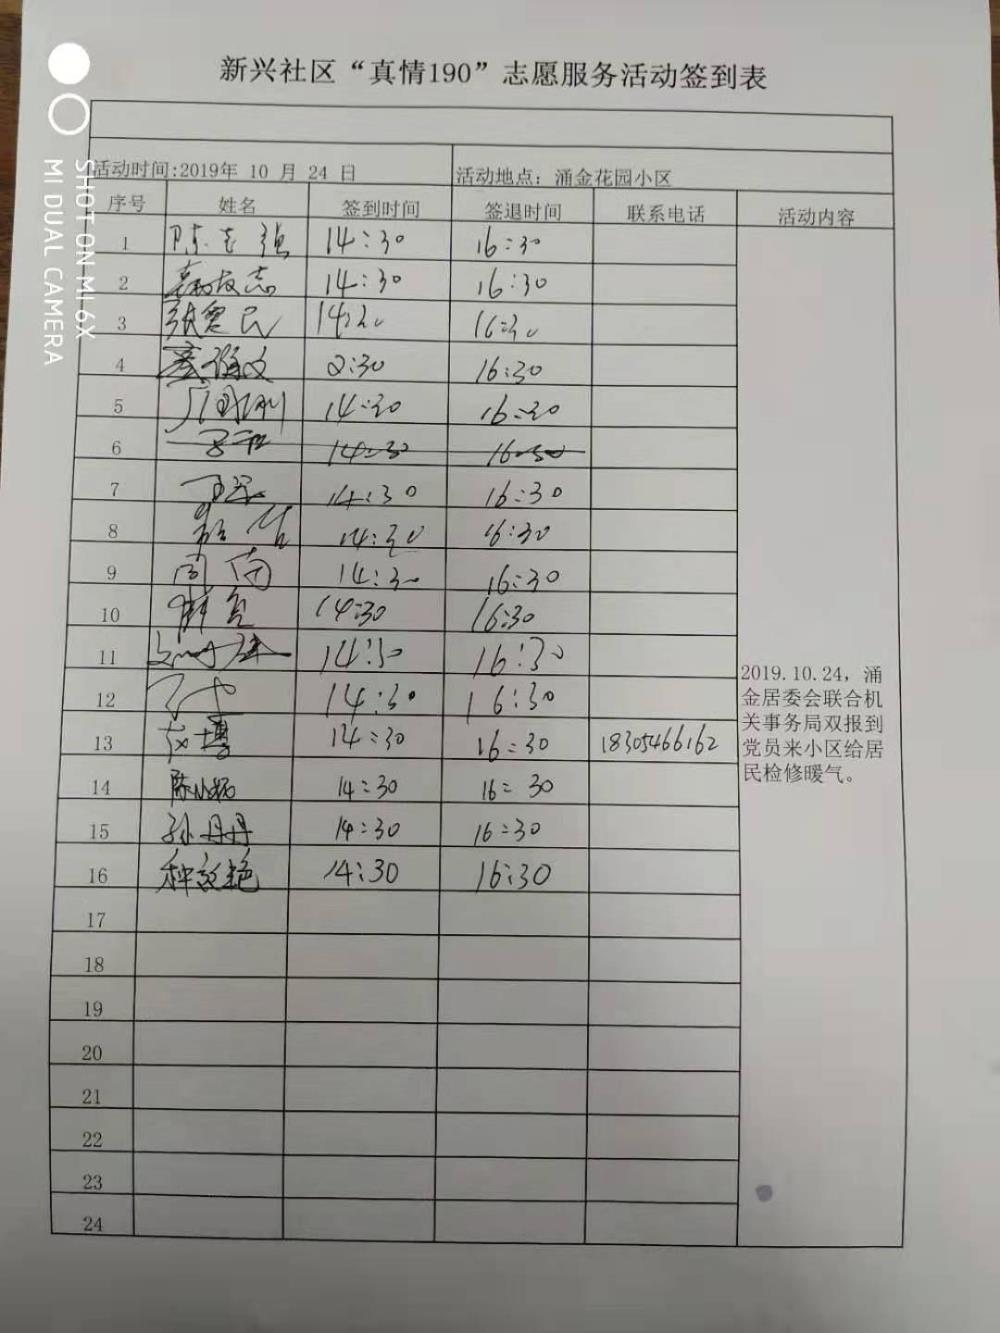 新兴社区“真情190”志愿服务活动签到表
活动时间:2019年 10 月 24 日 活动地点：涌金花园小区
序号 姓名 签到时间 签退时间 联系电话 活动内容
1 陈志强 14:30 16:30
2 14:30 16:30
3 14:30 16:30
4 2:30 16:30
5 14:30 16:30
6 14:30 16:30
7 14:30 16:30
8 14:30 16:30
9 周 14:30 16:30
10 14:30 16:30
11 14:30 16:30
12 14:30 16:30
13 博 14:30 16:30 18305466162
14 陈小 14:30 16:30
15 孙丹丹 14:30 16:30
16 种 艳 14:30 16:30
17
18
19
20
21
22
23
24
2019.10.24，涌
金居委会联合机
关事务局双报到
党员来小区给居
民检修暖气。
SHOT ON MI 6X
MI DUAL CAMERA